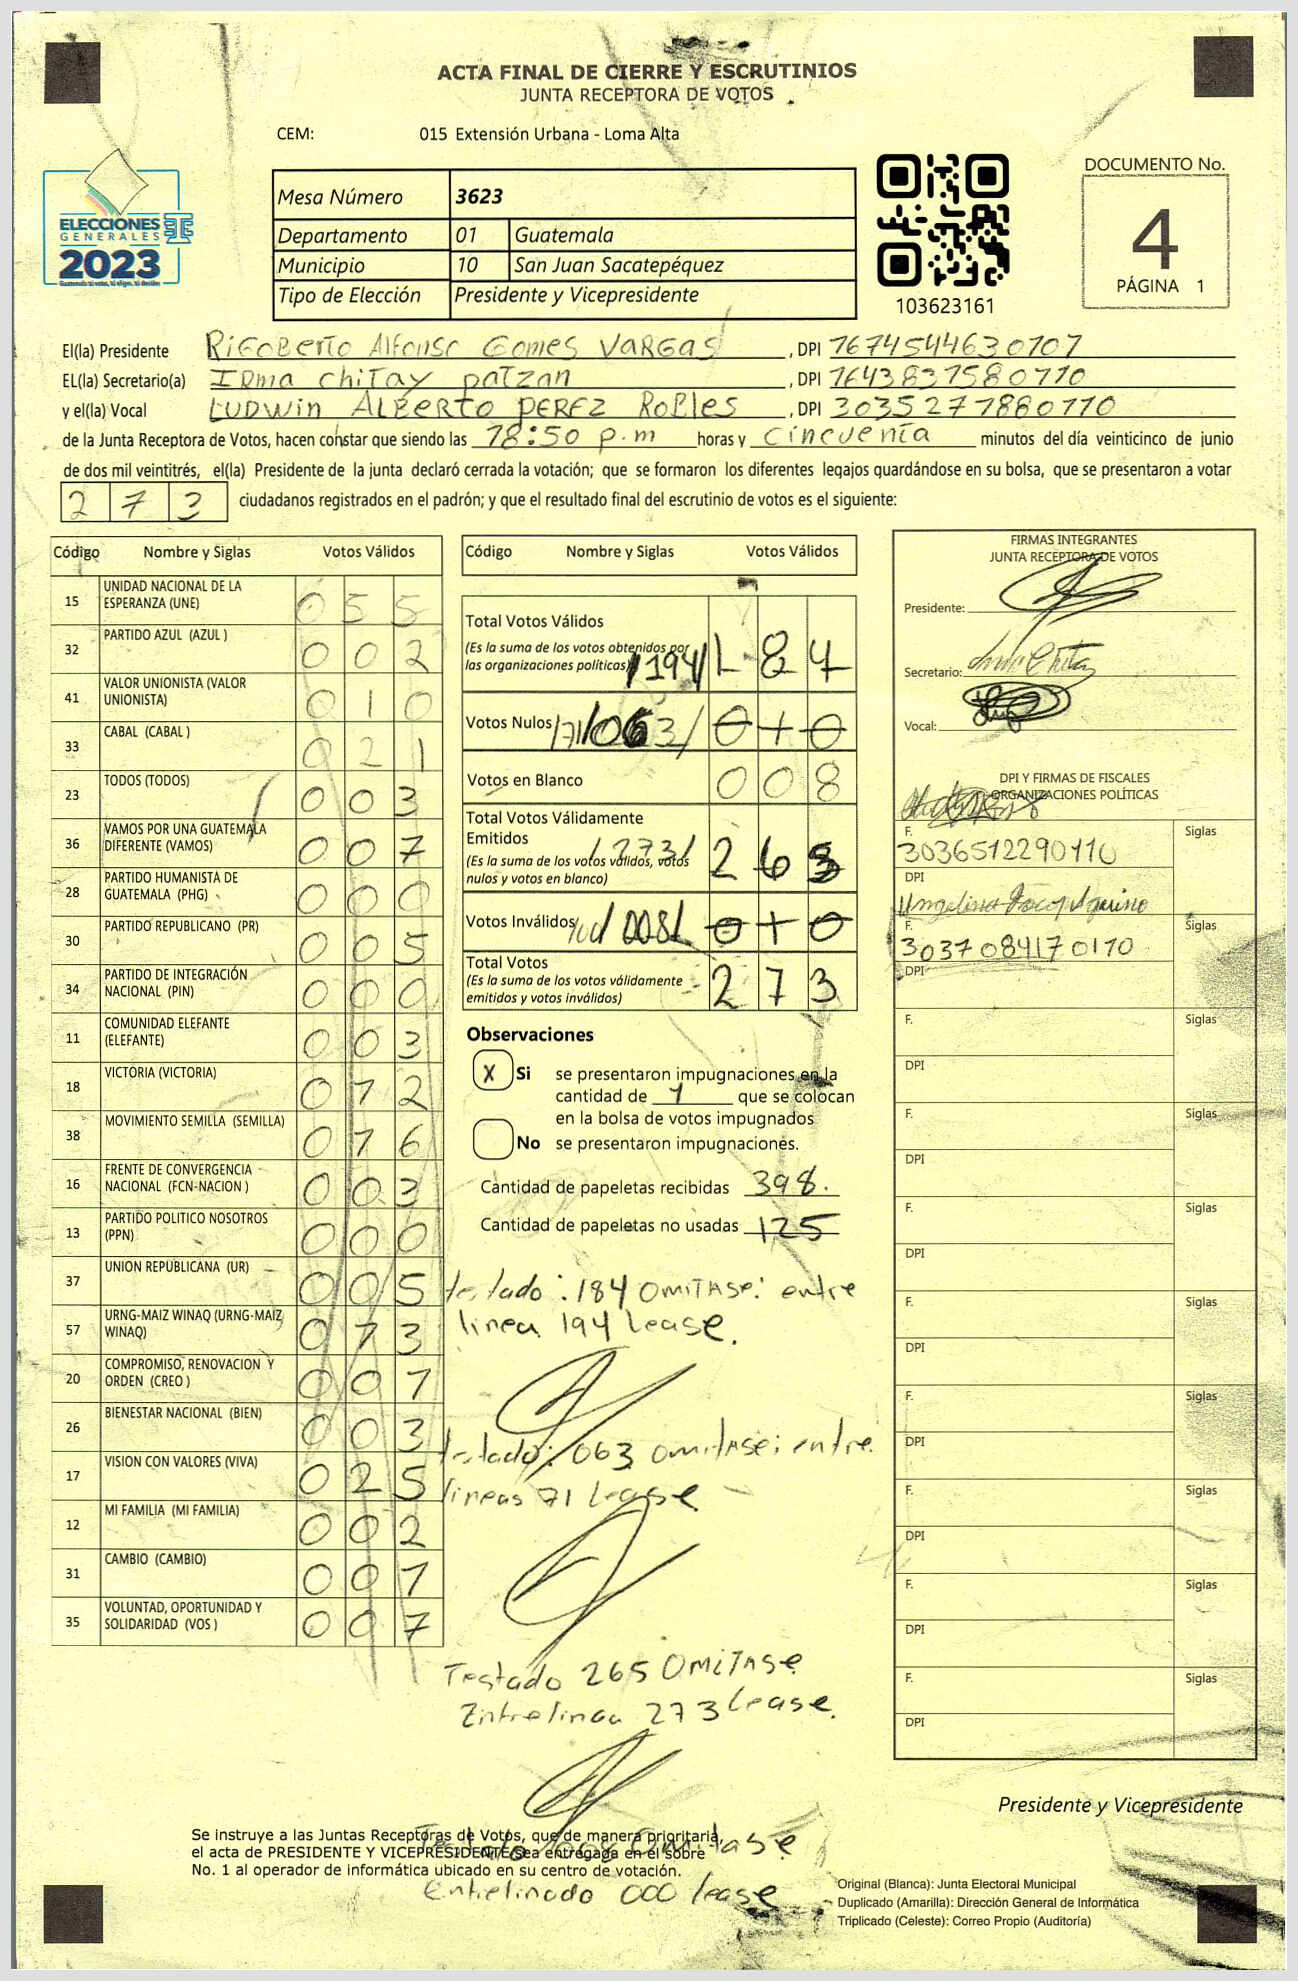 ACTA FINAL DE CIERRE Y ESCRUTINIOS
JUNTA RECEPTORA DE VOTOS
CEM: 015 Extensión Urbana - Loma Alta
ELECCIONES
GENERALES
2023
Mesa Número 3623
Departamento 01 Guatemala
Municipio 10 San Juan Sacatepéquez
Tipo de Elección Presidente y Vicepresidente
103623161
DOCUMENTO No.
4
PÁGINA 1
El(la) Presidente RiGoBerto Alfonso Gomes VARGAS, DPI 1674544630101
EL(la) Secretario(a) IRma chitay patzan, DPI 1643837580110
y el(la) Vocal LUDWin ALBerto PEREZ RoBles, DPI 3035277880110
de la Junta Receptora de Votos, hacen constar que siendo las 18:50 p.m horas y cincuenta minutos del día veinticinco de junio
de dos mil veintitrés, el(la) Presidente de la junta declaró cerrada la votación; que se formaron los diferentes legajos guardándose en su bolsa, que se presentaron a votar
273 ciudadanos registrados en el padrón; y que el resultado final del escrutinio de votos es el siguiente:
Código Nombre y Siglas Votos Válidos
15 UNIDAD NACIONAL DE LA ESPERANZA (UNE) 055
32 PARTIDO AZUL (AZUL ) 002
41 VALOR UNIONISTA (VALOR UNIONISTA) 010
33 CABAL (CABAL ) 021
23 TODOS (TODOS) 003
36 VAMOS POR UNA GUATEMALA DIFERENTE (VAMOS) 007
28 PARTIDO HUMANISTA DE GUATEMALA (PHG) 000
30 PARTIDO REPUBLICANO (PR) 005
34 PARTIDO DE INTEGRACIÓN NACIONAL (PIN) 000
11 COMUNIDAD ELEFANTE (ELEFANTE) 003
18 VICTORIA (VICTORIA) 012
38 MOVIMIENTO SEMILLA (SEMILLA) 016
16 FRENTE DE CONVERGENCIA NACIONAL (FCN-NACION ) 003
13 PARTIDO POLITICO NOSOTROS (PPN) 000
37 UNION REPUBLICANA (UR) 005
57 URNG-MAIZ WINAQ (URNG-MAIZ WINAQ) 013
20 COMPROMISO, RENOVACION Y ORDEN (CREO ) 001
26 BIENESTAR NACIONAL (BIEN) 003
17 VISION CON VALORES (VIVA) 025
12 MI FAMILIA (MI FAMILIA) 002
31 CAMBIO (CAMBIO) 001
35 VOLUNTAD, OPORTUNIDAD Y SOLIDARIDAD (VOS ) 007
Código Nombre y Siglas Votos Válidos
Total Votos Válidos
(Es la suma de los votos obtenidos por
las organizaciones políticas) /194/ 184
Votos Nulos /71/ 063/ 0+0
Votos en Blanco 008
Total Votos Válidamente
Emitidos
(Es la suma de los votos válidos, votos
nulos y votos en blanco) /273/ 263
Votos Inválidos 008 0+0
Total Votos
(Es la suma de los votos válidamente
emitidos y votos inválidos) 273
Observaciones
X Si se presentaron impugnaciones en la
cantidad de 1 que se colocan
en la bolsa de votos impugnados
No se presentaron impugnaciones.
Cantidad de papeletas recibidas 398.
Cantidad de papeletas no usadas 125
testado: 184 OmiTAse: entre
linea 194 Lease.
testado: 063 omitAse: entre
lineas 71 Lease
Testado 265 OmiTAse
Entrelinea 273 Lease.
Testado 008 Omitase
Entrelinado 000 lease
FIRMAS INTEGRANTES
JUNTA RECEPTORA DE VOTOS
Presidente:
Secretario:
Vocal:
DPI Y FIRMAS DE FISCALES
ORGANIZACIONES POLÍTICAS
F. Siglas
3036512290110
DPI
F. Siglas
3037084170110
DPI
F. Siglas
DPI
F. Siglas
DPI
F. Siglas
DPI
F. Siglas
DPI
F. Siglas
DPI
F. Siglas
DPI
F. Siglas
DPI
F. Siglas
DPI
Presidente y Vicepresidente
Se instruye a las Juntas Receptoras de Votos, que de manera prioritaria,
el acta de PRESIDENTE Y VICEPRESIDENTE sea entregada en el sobre
No. 1 al operador de informática ubicado en su centro de votación.
Original (Blanca): Junta Electoral Municipal
Duplicado (Amarilla): Dirección General de Informática
Triplicado (Celeste): Correo Propio (Auditoría)